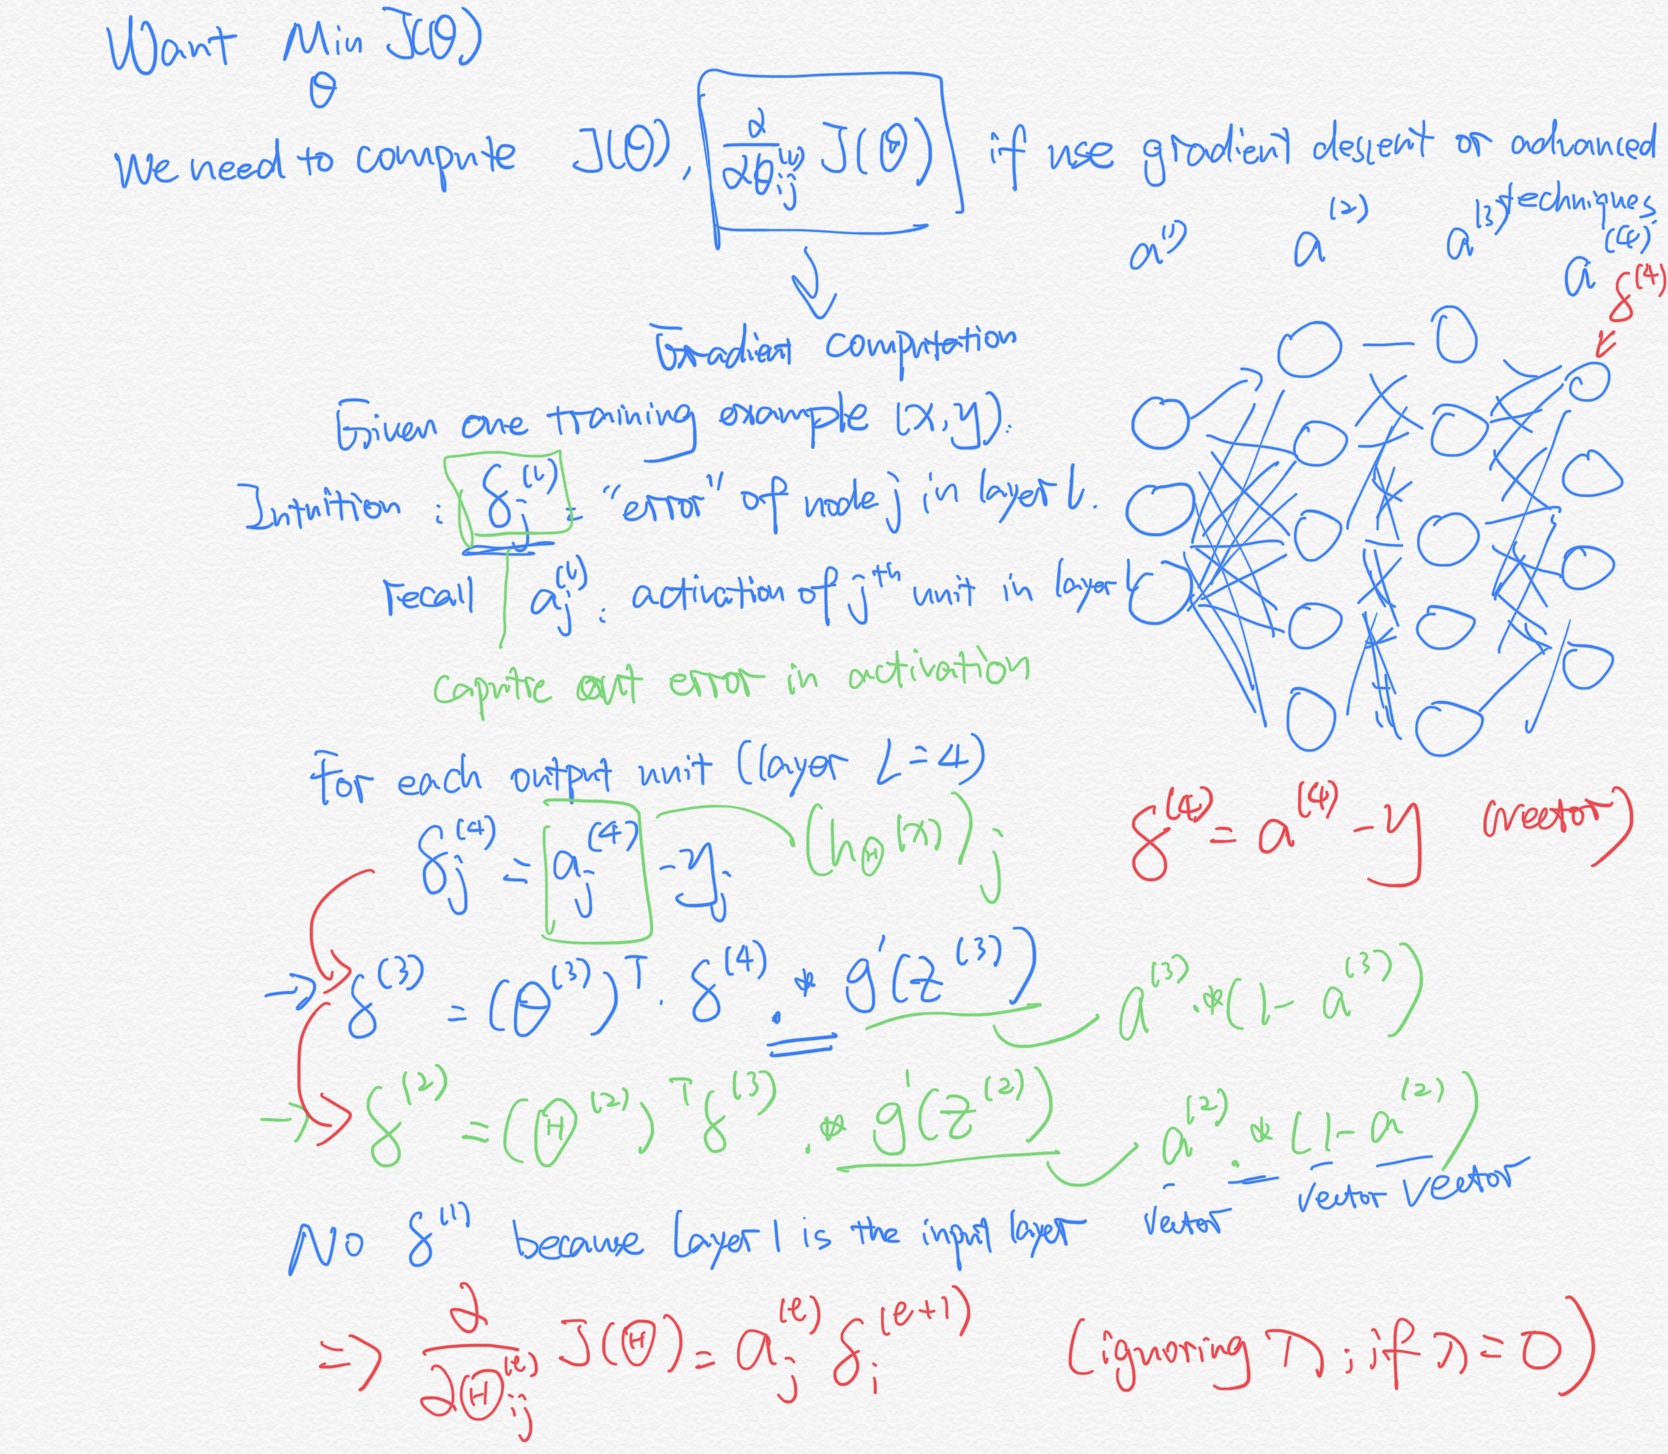 Want Min J(θ)
θ
We need to compute J(θ), ∂/∂θij^(l) J(θ) if use gradient descent or advanced
techniques
a^(1) a^(2) a^(3) a^(4)
δ^(4)
Gradient computation
Given one training example (x,y).
Intuition : δj^(l) = "error" of node j in layer l.
recall aj^(l): activation of j^th unit in layer l
error in activation
For each output unit (layer L=4)
δj^(4) = aj^(4) - yj (hΘ(x))j δ^(4) = a^(4) - y (vector)
→ δ^(3) = (θ^(3))^T · δ^(4) .* g'(z^(3)) a^(3) .* (1 - a^(3))
→ δ^(2) = (Θ^(2))^T δ^(3) .* g'(z^(2)) a^(2) .* (1 - a^(2))
vector vector vector
No δ^(1) because layer 1 is the input layer
=> ∂/∂Θij^(l) J(Θ) = aj^(l) δi^(l+1) (ignoring λ; if λ = 0)